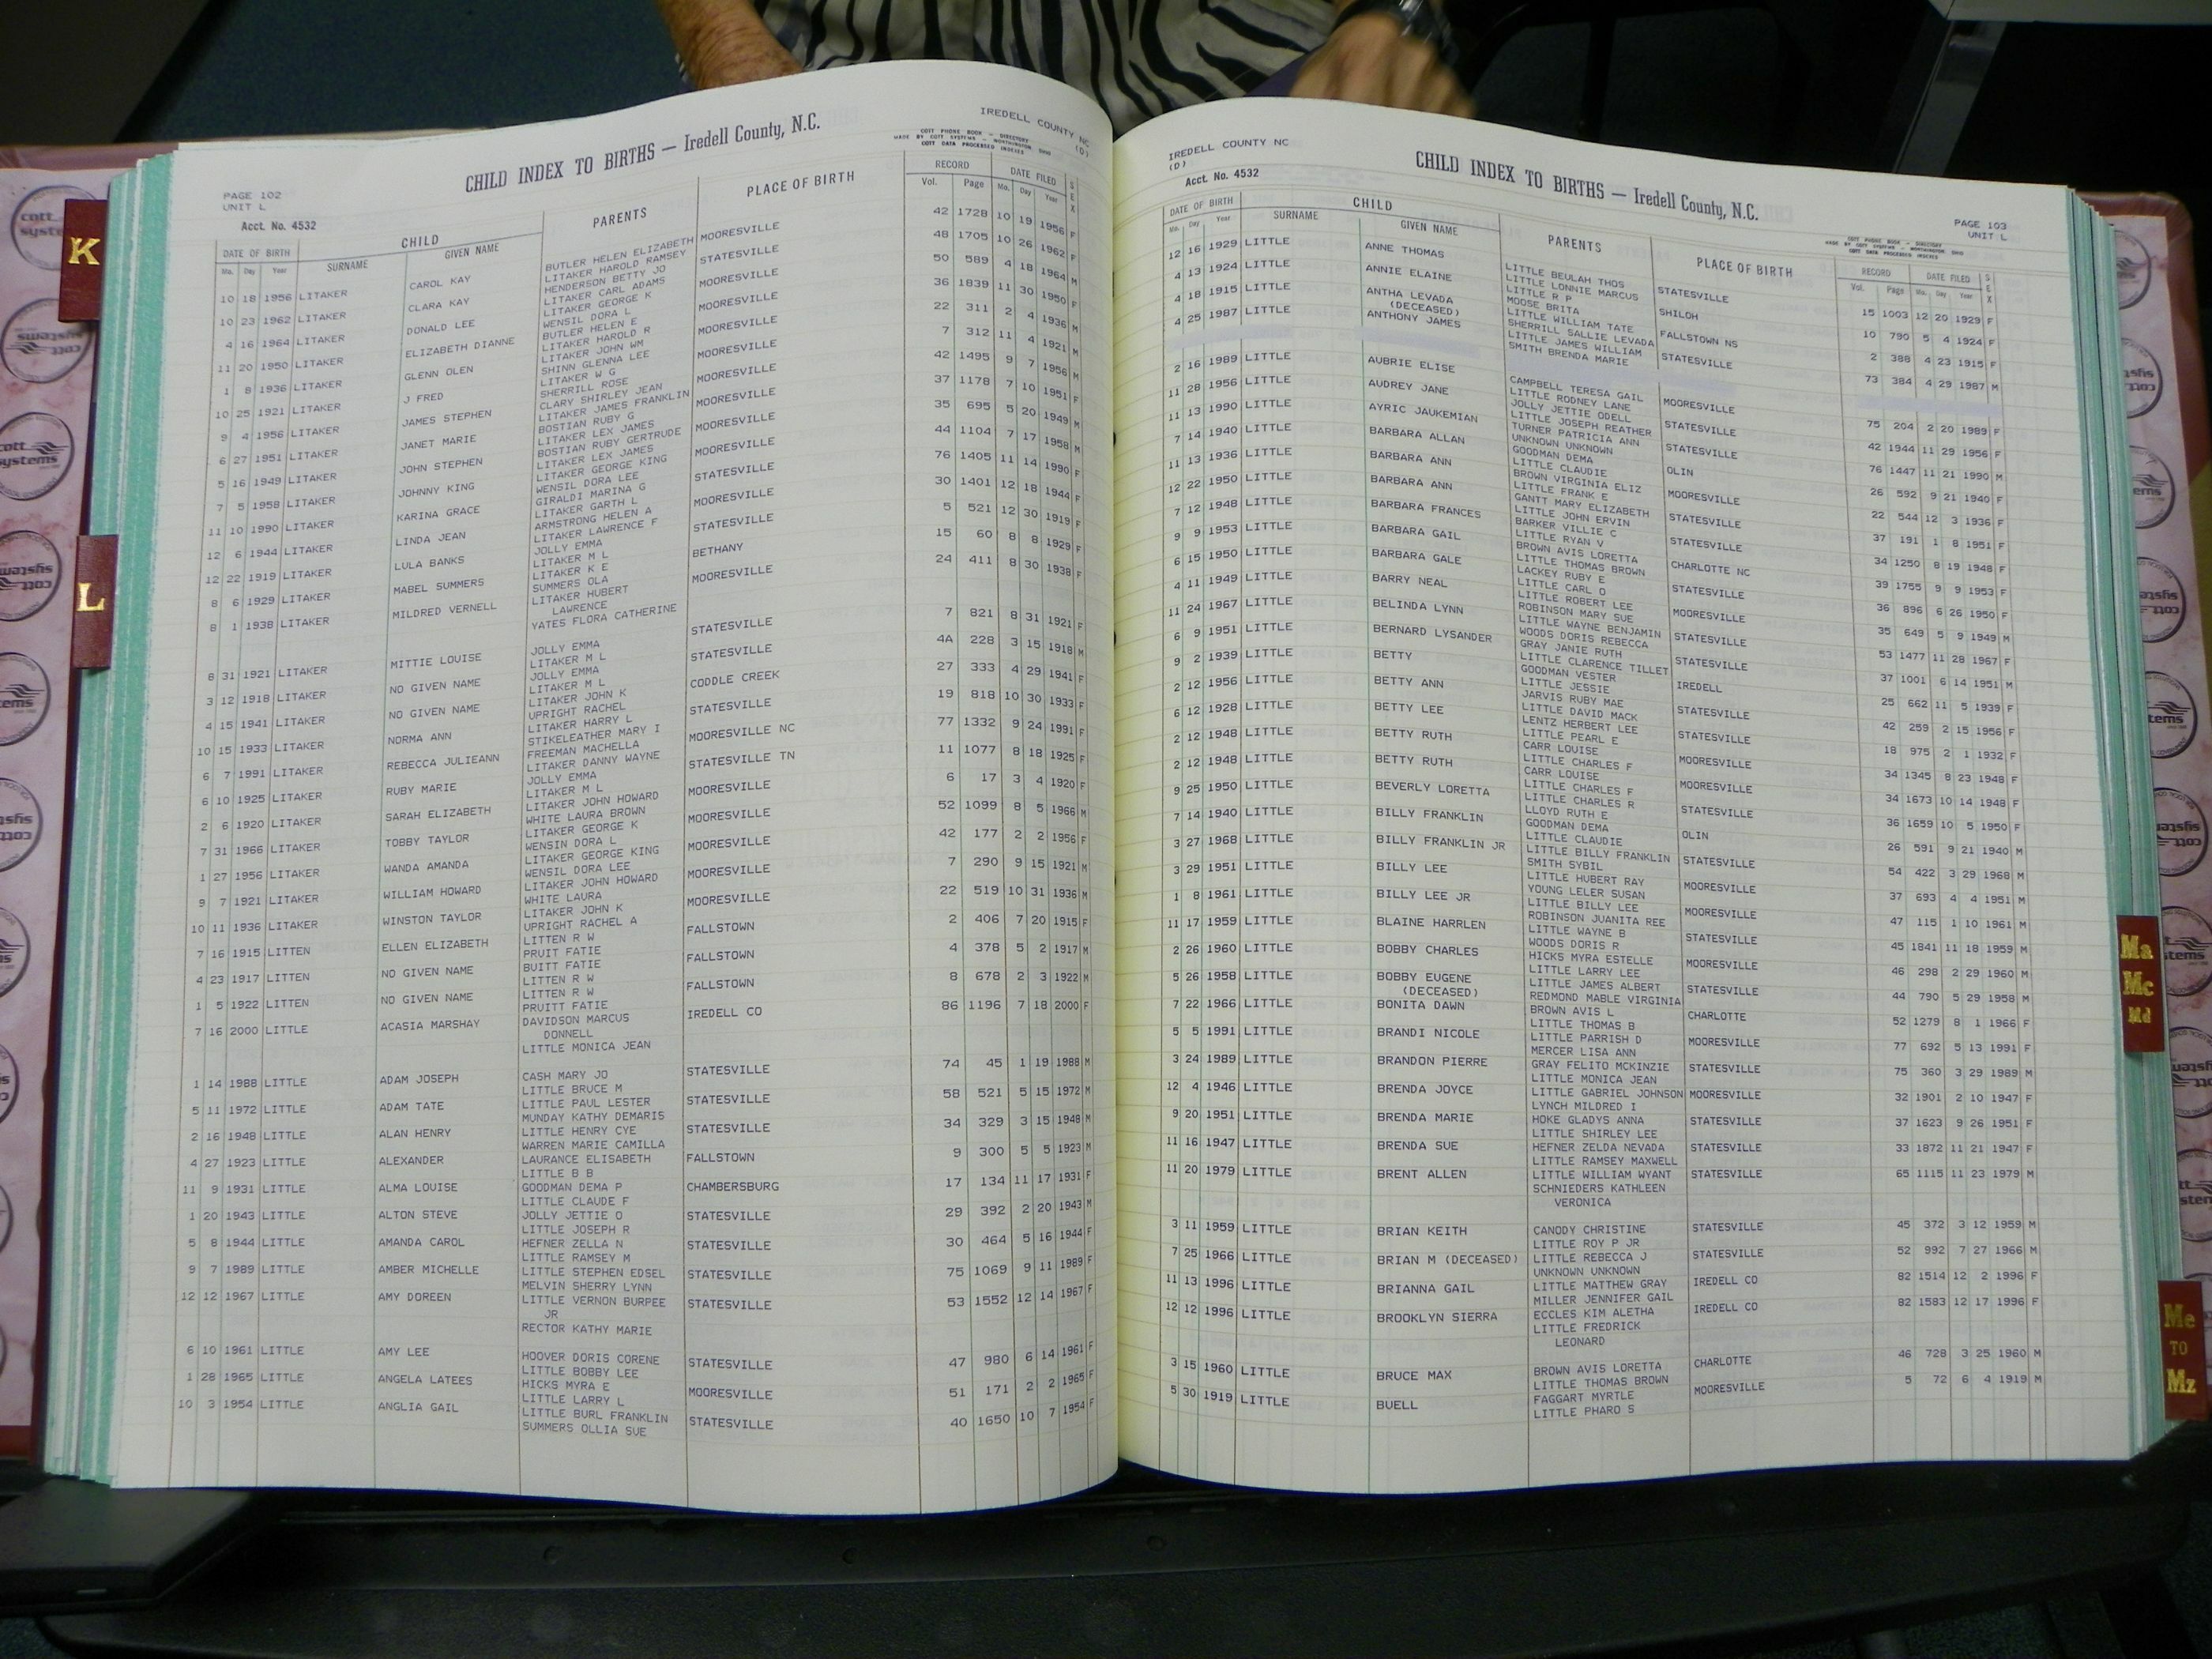 IREDELL COUNTY NC
(D)
CHILD INDEX TO BIRTHS — Iredell County, N.C.
COTT PHONE BOOK – DIRECTORY
MADE BY COTT SYSTEMS – WORTHINGTON OHIO
COTT DATA PROCESSED INDEXES
PAGE 102
UNIT L
Acct. No. 4532
DATE OF BIRTH CHILD PARENTS PLACE OF BIRTH RECORD DATE FILED SEX
Mo. Day Year SURNAME GIVEN NAME Vol. Page Mo. Day Year
10 18 1956 LITAKER CAROL KAY BUTLER HELEN ELIZABETH MOORESVILLE 42 1728 10 19 1956 F
LITAKER HAROLD RAMSEY
10 23 1962 LITAKER CLARA KAY HENDERSON BETTY JO STATESVILLE 48 1705 10 26 1962 F
LITAKER CARL ADAMS
4 16 1964 LITAKER DONALD LEE LITAKER GEORGE K MOORESVILLE 50 589 4 18 1964 M
WENSIL DORA L
11 20 1950 LITAKER ELIZABETH DIANNE BUTLER HELEN E MOORESVILLE 36 1839 11 30 1950 F
LITAKER HAROLD R
1 8 1936 LITAKER GLENN OLEN LITAKER JOHN WM MOORESVILLE 22 311 2 4 1936 M
SHINN GLENNA LEE
10 25 1921 LITAKER J FRED LITAKER W G MOORESVILLE 7 312 11 4 1921 M
SHERRILL ROSE
9 4 1956 LITAKER JAMES STEPHEN CLARY SHIRLEY JEAN MOORESVILLE 42 1495 9 7 1956 M
LITAKER JAMES FRANKLIN
6 27 1951 LITAKER JANET MARIE BOSTIAN RUBY G MOORESVILLE 37 1178 7 10 1951 F
LITAKER LEX JAMES
5 16 1949 LITAKER JOHN STEPHEN BOSTIAN RUBY GERTRUDE MOORESVILLE 35 695 5 20 1949 M
LITAKER LEX JAMES
7 5 1958 LITAKER JOHNNY KING LITAKER GEORGE KING MOORESVILLE 44 1104 7 17 1958 M
WENSIL DORA LEE
11 10 1990 LITAKER KARINA GRACE GIRALDI MARINA G STATESVILLE 76 1405 11 14 1990 F
LITAKER GARTH L
12 6 1944 LITAKER LINDA JEAN ARMSTRONG HELEN A MOORESVILLE 30 1401 12 18 1944 F
LITAKER LAWRENCE F
12 22 1919 LITAKER LULA BANKS JOLLY EMMA STATESVILLE 5 521 12 30 1919 F
LITAKER M L
8 6 1929 LITAKER MABEL SUMMERS LITAKER K E BETHANY 15 60 8 8 1929 F
SUMMERS OLA
8 1 1938 LITAKER MILDRED VERNELL LITAKER HUBERT MOORESVILLE 24 411 8 30 1938 F
LAWRENCE
YATES FLORA CATHERINE
8 31 1921 LITAKER MITTIE LOUISE JOLLY EMMA STATESVILLE 7 821 8 31 1921 F
LITAKER M L
3 12 1918 LITAKER NO GIVEN NAME JOLLY EMMA STATESVILLE 4A 228 3 15 1918 M
LITAKER M L
4 15 1941 LITAKER NO GIVEN NAME LITAKER JOHN K CODDLE CREEK 27 333 4 29 1941 F
UPRIGHT RACHEL
10 15 1933 LITAKER NORMA ANN LITAKER HARRY L STATESVILLE 19 818 10 30 1933 F
STIKELEATHER MARY I
6 7 1991 LITAKER REBECCA JULIEANN FREEMAN MACHELLA MOORESVILLE NC 77 1332 9 24 1991 F
LITAKER DANNY WAYNE
6 10 1925 LITAKER RUBY MARIE JOLLY EMMA STATESVILLE TN 11 1077 8 18 1925 F
LITAKER M L
2 6 1920 LITAKER SARAH ELIZABETH LITAKER JOHN HOWARD MOORESVILLE 6 17 3 4 1920 F
WHITE LAURA BROWN
7 31 1966 LITAKER TOBBY TAYLOR LITAKER GEORGE K MOORESVILLE 52 1099 8 5 1966 M
WENSIN DORA L
1 27 1956 LITAKER WANDA AMANDA LITAKER GEORGE KING MOORESVILLE 42 177 2 2 1956 F
WENSIL DORA LEE
9 7 1921 LITAKER WILLIAM HOWARD LITAKER JOHN HOWARD MOORESVILLE 7 290 9 15 1921 M
WHITE LAURA
10 11 1936 LITAKER WINSTON TAYLOR LITAKER JOHN K MOORESVILLE 22 519 10 31 1936 M
UPRIGHT RACHEL A
7 16 1915 LITTEN ELLEN ELIZABETH LITTEN R W FALLSTOWN 2 406 7 20 1915 F
PRUIT FATIE
4 23 1917 LITTEN NO GIVEN NAME BUITT FATIE FALLSTOWN 4 378 5 2 1917 M
LITTEN R W
1 5 1922 LITTEN NO GIVEN NAME LITTEN R W FALLSTOWN 8 678 2 3 1922 M
PRUITT FATIE
7 16 2000 LITTLE ACASIA MARSHAY DAVIDSON MARCUS IREDELL CO 86 1196 7 18 2000 F
DONNELL
LITTLE MONICA JEAN
1 14 1988 LITTLE ADAM JOSEPH CASH MARY JO STATESVILLE 74 45 1 19 1988 M
LITTLE BRUCE M
5 11 1972 LITTLE ADAM TATE LITTLE PAUL LESTER STATESVILLE 58 521 5 15 1972 M
MUNDAY KATHY DEMARIS
2 16 1948 LITTLE ALAN HENRY LITTLE HENRY CYE STATESVILLE 34 329 3 15 1948 M
WARREN MARIE CAMILLA
4 27 1923 LITTLE ALEXANDER LAURANCE ELISABETH FALLSTOWN 9 300 5 5 1923 M
LITTLE B B
11 9 1931 LITTLE ALMA LOUISE GOODMAN DEMA P CHAMBERSBURG 17 134 11 17 1931 F
LITTLE CLAUDE F
1 20 1943 LITTLE ALTON STEVE JOLLY JETTIE O STATESVILLE 29 392 2 20 1943 M
LITTLE JOSEPH R
5 8 1944 LITTLE AMANDA CAROL HEFNER ZELLA N STATESVILLE 30 464 5 16 1944 F
LITTLE RAMSEY M
9 7 1989 LITTLE AMBER MICHELLE LITTLE STEPHEN EDSEL STATESVILLE 75 1069 9 11 1989 F
MELVIN SHERRY LYNN
12 12 1967 LITTLE AMY DOREEN LITTLE VERNON BURPEE STATESVILLE 53 1552 12 14 1967 F
JR
RECTOR KATHY MARIE
6 10 1961 LITTLE AMY LEE HOOVER DORIS CORENE STATESVILLE 47 980 6 14 1961 F
LITTLE BOBBY LEE
1 28 1965 LITTLE ANGELA LATEES HICKS MYRA E MOORESVILLE 51 171 2 2 1965 F
LITTLE LARRY L
10 3 1954 LITTLE ANGLIA GAIL LITTLE BURL FRANKLIN STATESVILLE 40 1650 10 7 1954 F
SUMMERS OLLIA SUE
IREDELL COUNTY NC
(D)
Acct. No. 4532
CHILD INDEX TO BIRTHS — Iredell County, N.C.
PAGE 103
UNIT L
COTT PHONE BOOK – DIRECTORY
MADE BY COTT SYSTEMS – WORTHINGTON OHIO
COTT DATA PROCESSED INDEXES
DATE OF BIRTH CHILD PARENTS PLACE OF BIRTH RECORD DATE FILED SEX
Mo. Day Year SURNAME GIVEN NAME Vol. Page Mo. Day Year
12 16 1929 LITTLE ANNE THOMAS LITTLE BEULAH THOS STATESVILLE 15 1003 12 20 1929 F
LITTLE LONNIE MARCUS
4 13 1924 LITTLE ANNIE ELAINE LITTLE R P SHILOH 10 790 5 4 1924 F
MOOSE BRITA
4 18 1915 LITTLE ANTHA LEVADA LITTLE WILLIAM TATE FALLSTOWN NS 2 388 4 23 1915 F
(DECEASED) SHERRILL SALLIE LEVADA
4 25 1987 LITTLE ANTHONY JAMES LITTLE JAMES WILLIAM STATESVILLE 73 384 4 29 1987 M
SMITH BRENDA MARIE
2 16 1989 LITTLE AUBRIE ELISE CAMPBELL TERESA GAIL MOORESVILLE 75 204 2 20 1989 F
LITTLE RODNEY LANE
11 28 1956 LITTLE AUDREY JANE JOLLY JETTIE ODELL STATESVILLE 42 1944 11 29 1956 F
LITTLE JOSEPH REATHER
11 13 1990 LITTLE AYRIC JAUKEMIAN TURNER PATRICIA ANN STATESVILLE 76 1447 11 21 1990 M
UNKNOWN UNKNOWN
7 14 1940 LITTLE BARBARA ALLAN GOODMAN DEMA OLIN 26 592 9 21 1940 F
LITTLE CLAUDIE
11 13 1936 LITTLE BARBARA ANN BROWN VIRGINIA ELIZ MOORESVILLE 22 544 12 3 1936 F
LITTLE FRANK E
12 22 1950 LITTLE BARBARA ANN GANTT MARY ELIZABETH STATESVILLE 37 191 1 8 1951 F
LITTLE JOHN ERVIN
7 12 1948 LITTLE BARBARA FRANCES BARKER VILLIE C STATESVILLE 34 1250 8 19 1948 F
LITTLE RYAN V
9 9 1953 LITTLE BARBARA GAIL BROWN AVIS LORETTA CHARLOTTE NC 39 1755 9 9 1953 F
LITTLE THOMAS BROWN
6 15 1950 LITTLE BARBARA GALE LACKEY RUBY E STATESVILLE 36 896 6 26 1950 F
LITTLE CARL O
4 11 1949 LITTLE BARRY NEAL LITTLE ROBERT LEE MOORESVILLE 35 649 5 9 1949 M
ROBINSON MARY SUE
11 24 1967 LITTLE BELINDA LYNN LITTLE WAYNE BENJAMIN STATESVILLE 53 1477 11 28 1967 F
WOODS DORIS REBECCA
6 9 1951 LITTLE BERNARD LYSANDER GRAY JANIE RUTH STATESVILLE 37 1001 6 14 1951 M
LITTLE CLARENCE TILLET
9 2 1939 LITTLE BETTY GOODMAN VESTER IREDELL 25 662 11 5 1939 F
LITTLE JESSIE
2 12 1956 LITTLE BETTY ANN JARVIS RUBY MAE STATESVILLE 42 259 2 15 1956 F
LITTLE DAVID MACK
6 12 1928 LITTLE BETTY LEE LENTZ HERBERT LEE STATESVILLE 18 975 2 1 1932 F
LITTLE PEARL E
2 12 1948 LITTLE BETTY RUTH CARR LOUISE MOORESVILLE 34 1345 8 23 1948 F
LITTLE CHARLES F
2 12 1948 LITTLE BETTY RUTH CARR LOUISE MOORESVILLE 34 1673 10 14 1948 F
LITTLE CHARLES F
9 25 1950 LITTLE BEVERLY LORETTA LITTLE CHARLES R STATESVILLE 36 1659 10 5 1950 F
LLOYD RUTH E
7 14 1940 LITTLE BILLY FRANKLIN GOODMAN DEMA OLIN 26 591 9 21 1940 M
LITTLE CLAUDIE
3 27 1968 LITTLE BILLY FRANKLIN JR LITTLE BILLY FRANKLIN STATESVILLE 54 422 3 29 1968 M
SMITH SYBIL
3 29 1951 LITTLE BILLY LEE LITTLE HUBERT RAY MOORESVILLE 37 693 4 4 1951 M
YOUNG LELER SUSAN
1 8 1961 LITTLE BILLY LEE JR LITTLE BILLY LEE MOORESVILLE 47 115 1 10 1961 M
ROBINSON JUANITA REE
11 17 1959 LITTLE BLAINE HARRLEN LITTLE WAYNE B STATESVILLE 45 1841 11 18 1959 M
WOODS DORIS R
2 26 1960 LITTLE BOBBY CHARLES HICKS MYRA ESTELLE MOORESVILLE 46 298 2 29 1960 M
LITTLE LARRY LEE
5 26 1958 LITTLE BOBBY EUGENE LITTLE JAMES ALBERT STATESVILLE 44 790 5 29 1958 M
(DECEASED) REDMOND MABLE VIRGINIA
7 22 1966 LITTLE BONITA DAWN BROWN AVIS L CHARLOTTE 52 1279 8 1 1966 F
LITTLE THOMAS B
5 5 1991 LITTLE BRANDI NICOLE LITTLE PARRISH D MOORESVILLE 77 692 5 13 1991 F
MERCER LISA ANN
3 24 1989 LITTLE BRANDON PIERRE GRAY FELITO MCKINZIE STATESVILLE 75 360 3 29 1989 M
LITTLE MONICA JEAN
12 4 1946 LITTLE BRENDA JOYCE LITTLE GABRIEL JOHNSON MOORESVILLE 32 1901 2 10 1947 F
LYNCH MILDRED I
9 20 1951 LITTLE BRENDA MARIE HOKE GLADYS ANNA STATESVILLE 37 1623 9 26 1951 F
LITTLE SHIRLEY LEE
11 16 1947 LITTLE BRENDA SUE HEFNER ZELDA NEVADA STATESVILLE 33 1872 11 21 1947 F
LITTLE RAMSEY MAXWELL
11 20 1979 LITTLE BRENT ALLEN LITTLE WILLIAM WYANT STATESVILLE 65 1115 11 23 1979 M
SCHNIEDERS KATHLEEN
VERONICA
3 11 1959 LITTLE BRIAN KEITH CANODY CHRISTINE STATESVILLE 45 372 3 12 1959 M
LITTLE ROY P JR
7 25 1966 LITTLE BRIAN M (DECEASED) LITTLE REBECCA J STATESVILLE 52 992 7 27 1966 M
UNKNOWN UNKNOWN
11 13 1996 LITTLE BRIANNA GAIL LITTLE MATTHEW GRAY IREDELL CO 82 1514 12 2 1996 F
MILLER JENNIFER GAIL
12 12 1996 LITTLE BROOKLYN SIERRA ECCLES KIM ALETHA IREDELL CO 82 1583 12 17 1996 F
LITTLE FREDRICK
LEONARD
3 15 1960 LITTLE BRUCE MAX BROWN AVIS LORETTA CHARLOTTE 46 728 3 25 1960 M
LITTLE THOMAS BROWN
5 30 1919 LITTLE BUELL FAGGART MYRTLE MOORESVILLE 5 72 6 4 1919 M
LITTLE PHARO S
K
L
Ma
Mc
Md
Me
TO
Mz
cott
systems